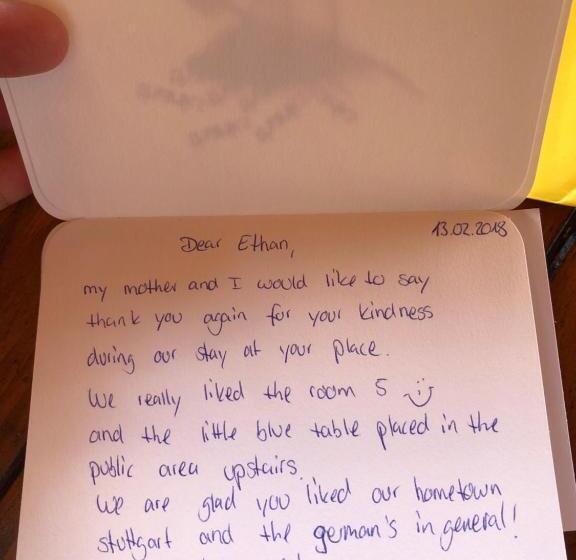 13.02.2018
Dear Ethan,
my mother and I would like to say
thank you again for your kindness
during our stay at your place.
We really liked the room 5 :)
and the little blue table placed in the
public area upstairs.
We are glad you liked our hometown
stuttgart and the german's in general!